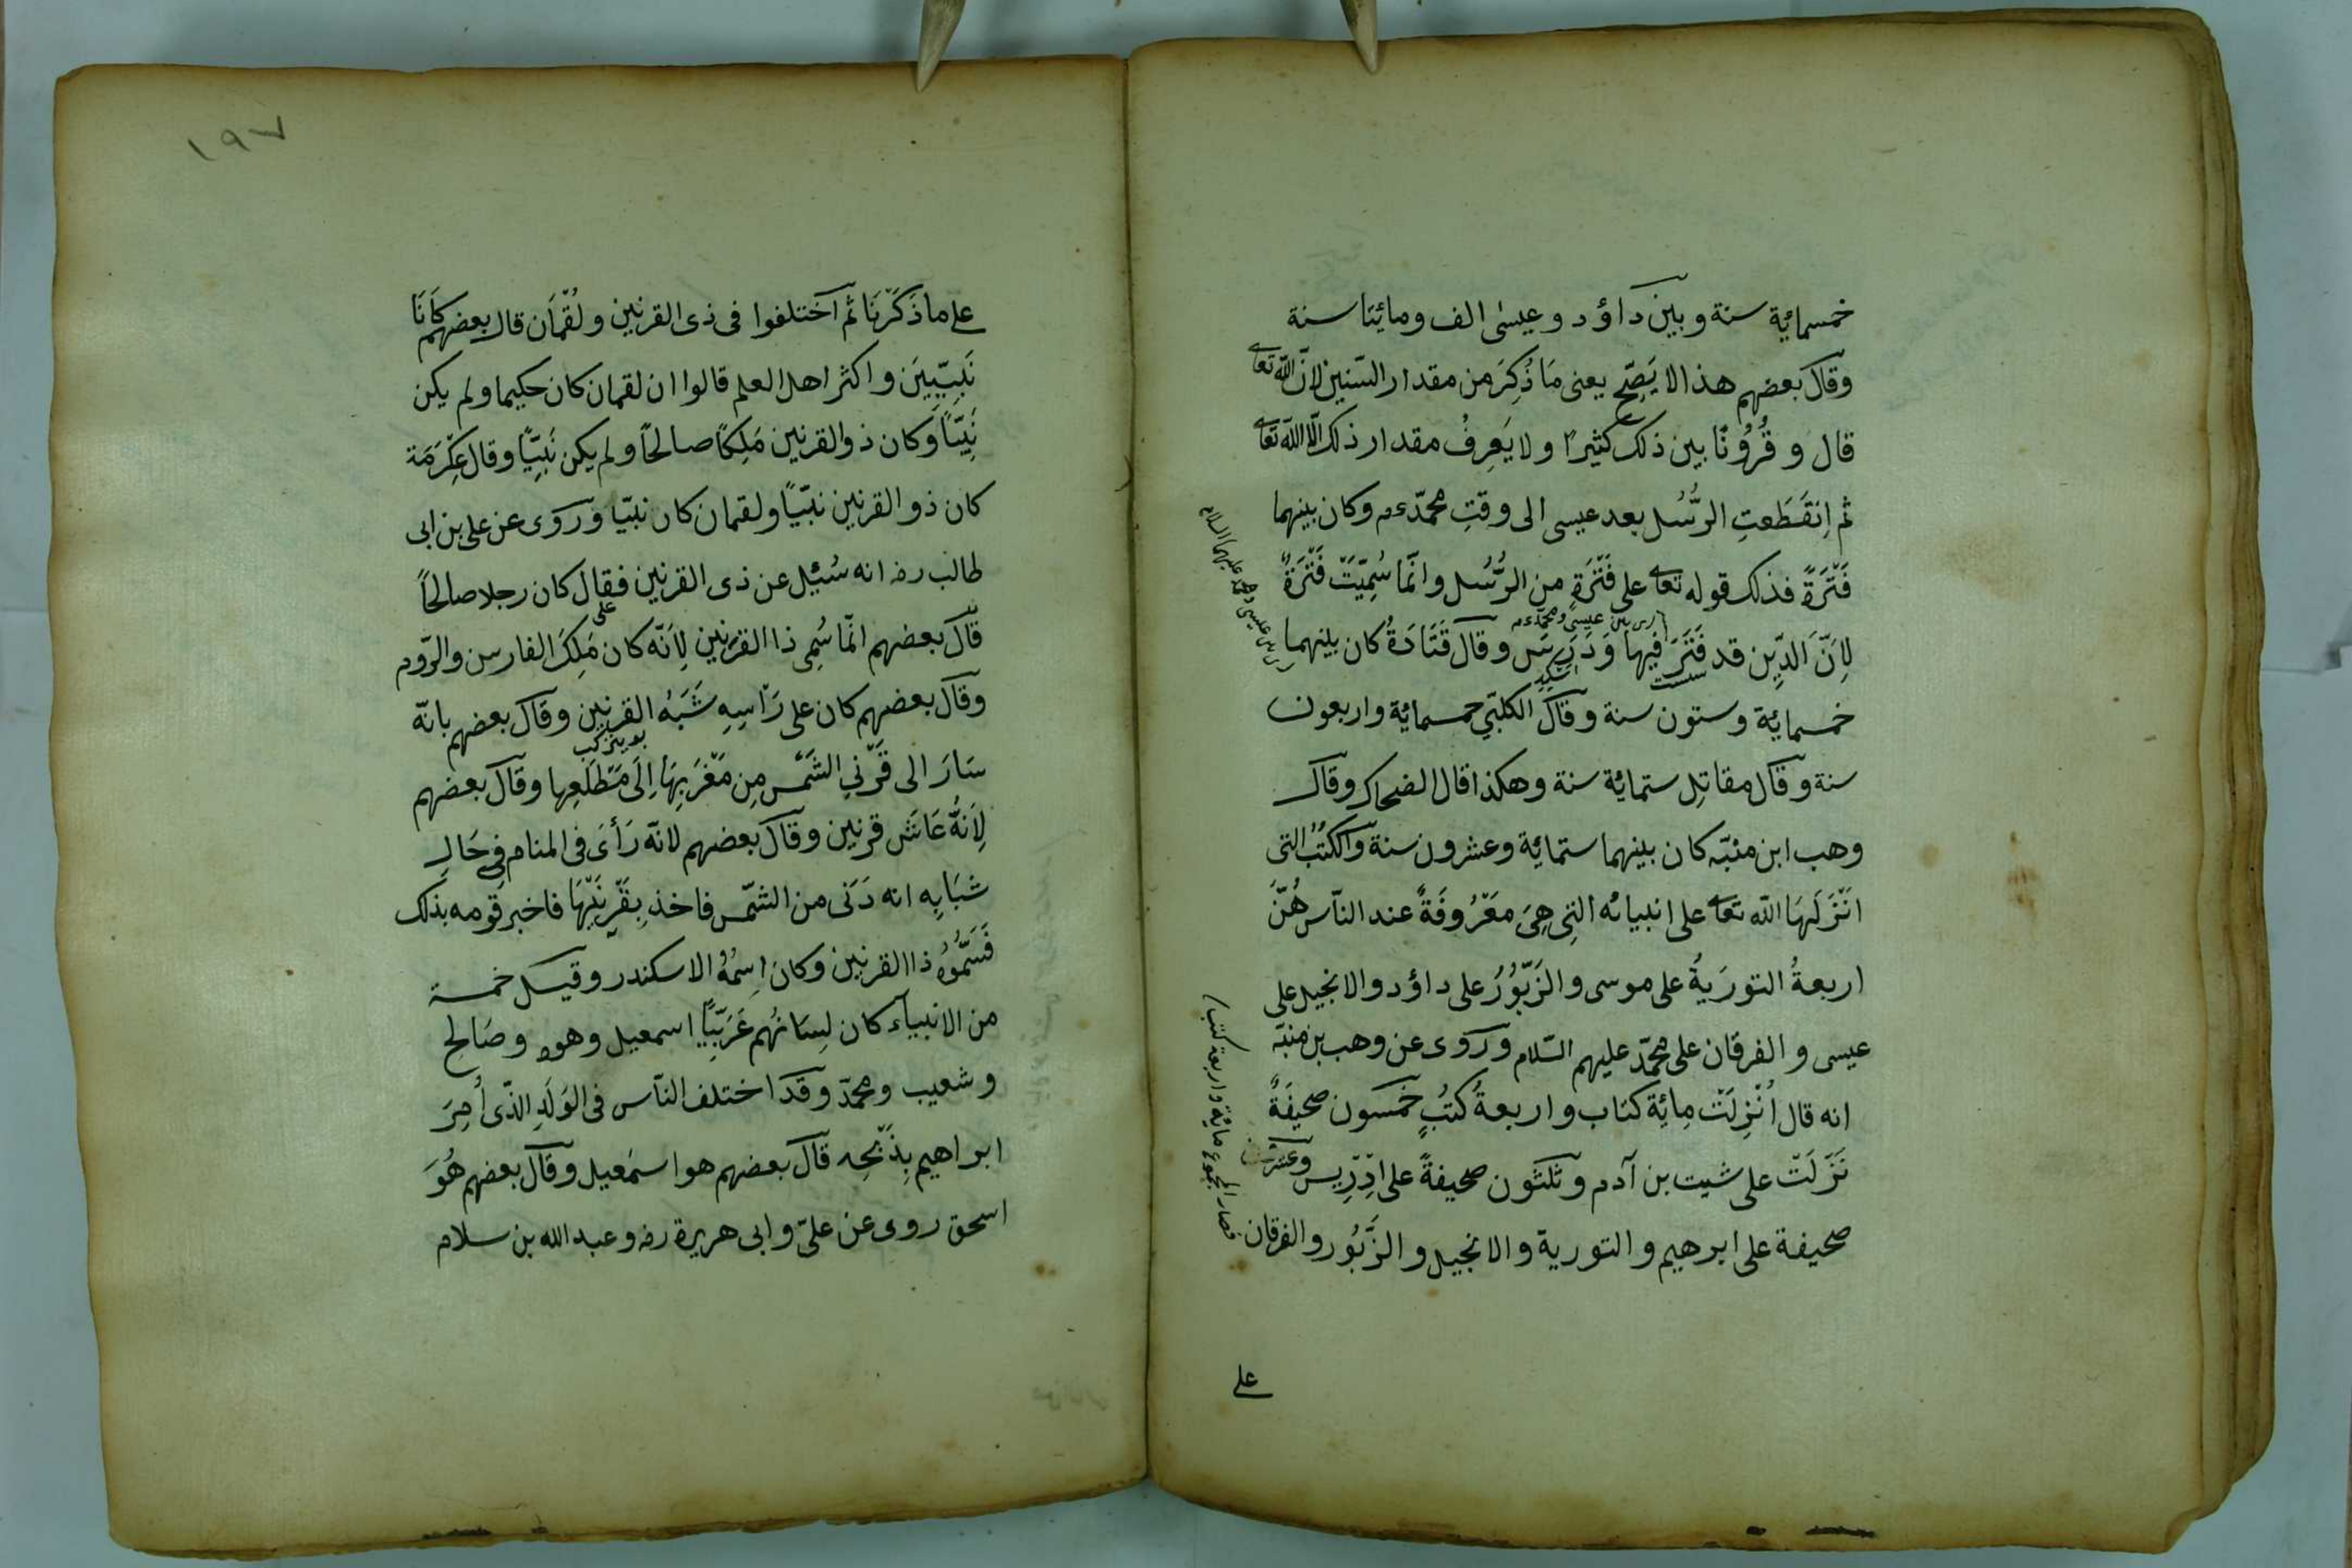 خمسمائة سنة وبين داؤد وعيسى الف ومائيتا سنة
وقال بعضهم هذا لا يَصِحّ يعنى مَا ذُكِرَ من مقدار السّنين لانّ الله تعالى
قال وقُرُونًا بين ذلك كثيرًا ولا يَعرِفُ مقدار ذلك الّا الله تعالى
ثم اِنقَطَعتِ الرُّسُل بعد عيسى الى وقتِ محمّد ءم وكان بينهما
فَتْرَةً فذلك قوله تعالى على فَتْرَةٍ من الرُّسُل وانّما سُمِّيَتْ فَتْرَةً
اى بين عيسى ومحمّد ءم
لِاَنَّ الدِّين قد فَتَرَ فيها وَدَرَسَ وقال قَتَادَةُ كان بينهما
اى بين عيسى ومحمد عليهما السلام
خمسمائة وستون سنة وقال الكلبّي خمسمائة واربعون
سنة وقال مقاتِل ستمائة سنة وهكذا قال الضحاك وقال
وهب ابن منبّه كان بينهما ستمائة وعشرون سنة والكُتُبُ التى
انْزَلَهَا الله تعالى على انبيائه التِى هِىَ مَعْرُوفَةٌ عند النّاس هُنَّ
اربعةُ التورَيةُ على موسى والزَّبُورُ على داؤد والانجيل على
عيسى والفرقان على محمّد عليهم السّلام وروى عن وهب بن منبّه
انه قال اُنْزِلَتْ مِائة كتاب واربعةُ كُتُبٍ خَمسون صحيفَةً
نَزَلَتْ على شيت بن آدم وثلثون صحيفةً على اِدْرِيس وعشرون
صحيفة على ابرهيم والتورية والانجيل والزَّبُور والفرقان
فصار المجموع مائة واربعة كتب
على
١٩٧
على ما ذَكَرْنَا ثمّ اختلفوا فى ذى القرنين ولُقْمَان قال بعضهم كَانَا
نَبِيّيِينَ واكثر اهل العلم قالوا ان لقمان كان حكيما ولم يكن
نَبِيّاً وَكان ذو القرنين مَلِكًا صالحاً ولم يكن نَبِيًّا وقال عِكْرَمَة
كان ذو القرنين نبيّاً ولقمان كان نبيّا وروى عن على بن ابى
طالب رضہ انه سُئِل عن ذى القرنين فقال كان رجلا صالحاً
على
قال بعضهم انّما سُمِى ذا القرنين لِاَنّه كان مَلِكَ الفارس والرّوم
وقال بعضهم كان على رَأسِهِ شَبَهُ القرنين وقال بعضهم بانّه
سَارَ الى قَرْنيِ الشَمْسِ مِن مَغْرَبِهَا اِلَى مَطْلَعِها وقال بعضهم
لِاَنهُ عَاشَ قرنين وقال بعضهم لانّه رَأىَ فى المنام فى حَالِ
شبَابِه انه دَنَى من الشمّس فاخذ بِقَرْنَيْهَا فاخبر قومه بذلك
فَسَمُّوهُ ذا القرنين وكان اِسمُهُ الاسكندر وقيل خمسة
من الانبياء كان لِسَانُهم عَرَبِيًّا اسمعيل وهود وصَالح
وشعيب ومحمّد وقد اختلف النّاس فى الوَلَدِ الذّى اُمِرَ
ابراهيم بِذَبْحِه قال بعضهم هو اسمَعيل وقال بعضهم هُوَ
اسحق روى عن علىّ وابى هريرة رضہ وعبد الله بن سلام